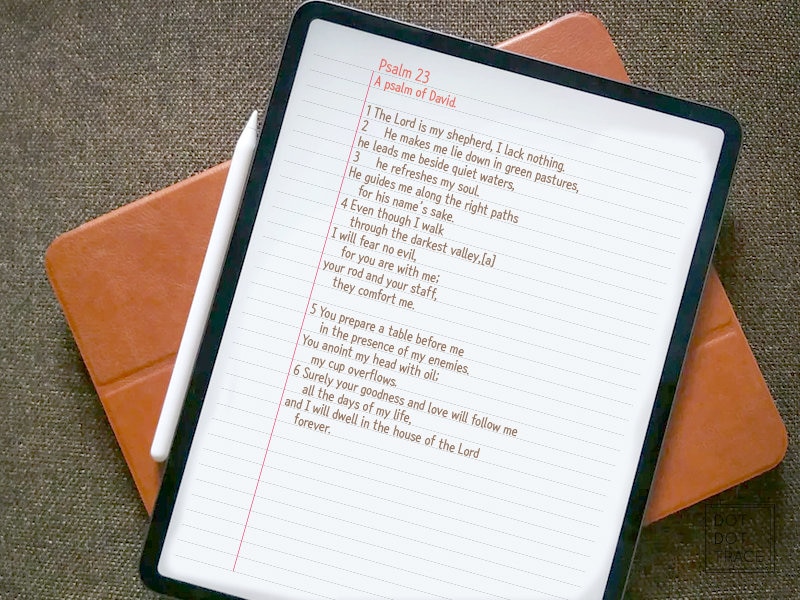 Psalm 23
A psalm of David.
1 The Lord is my shepherd, I lack nothing.
2 He makes me lie down in green pastures,
he leads me beside quiet waters,
3 he refreshes my soul.
He guides me along the right paths
for his name's sake.
4 Even though I walk
through the darkest valley,[a]
I will fear no evil,
for you are with me;
your rod and your staff,
they comfort me.
5 You prepare a table before me
in the presence of my enemies.
You anoint my head with oil;
my cup overflows.
6 Surely your goodness and love will follow me
all the days of my life,
and I will dwell in the house of the Lord
forever.
DOT
DOT
SPACE